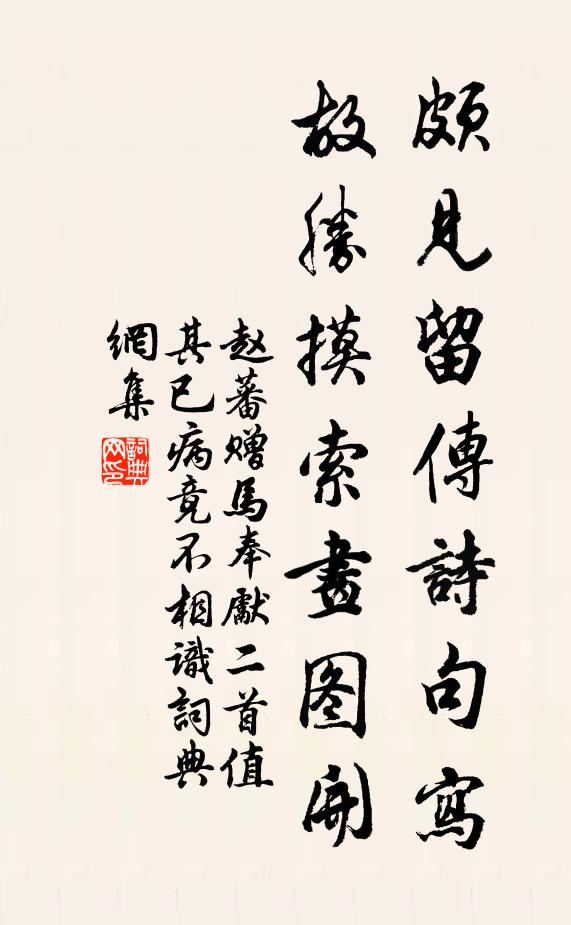 頗見留傳詩句寫
故勝摸索畫图開
赵蕃赠馬奉獻二首值
其已病竟不相識詞典
網集
詞典网印